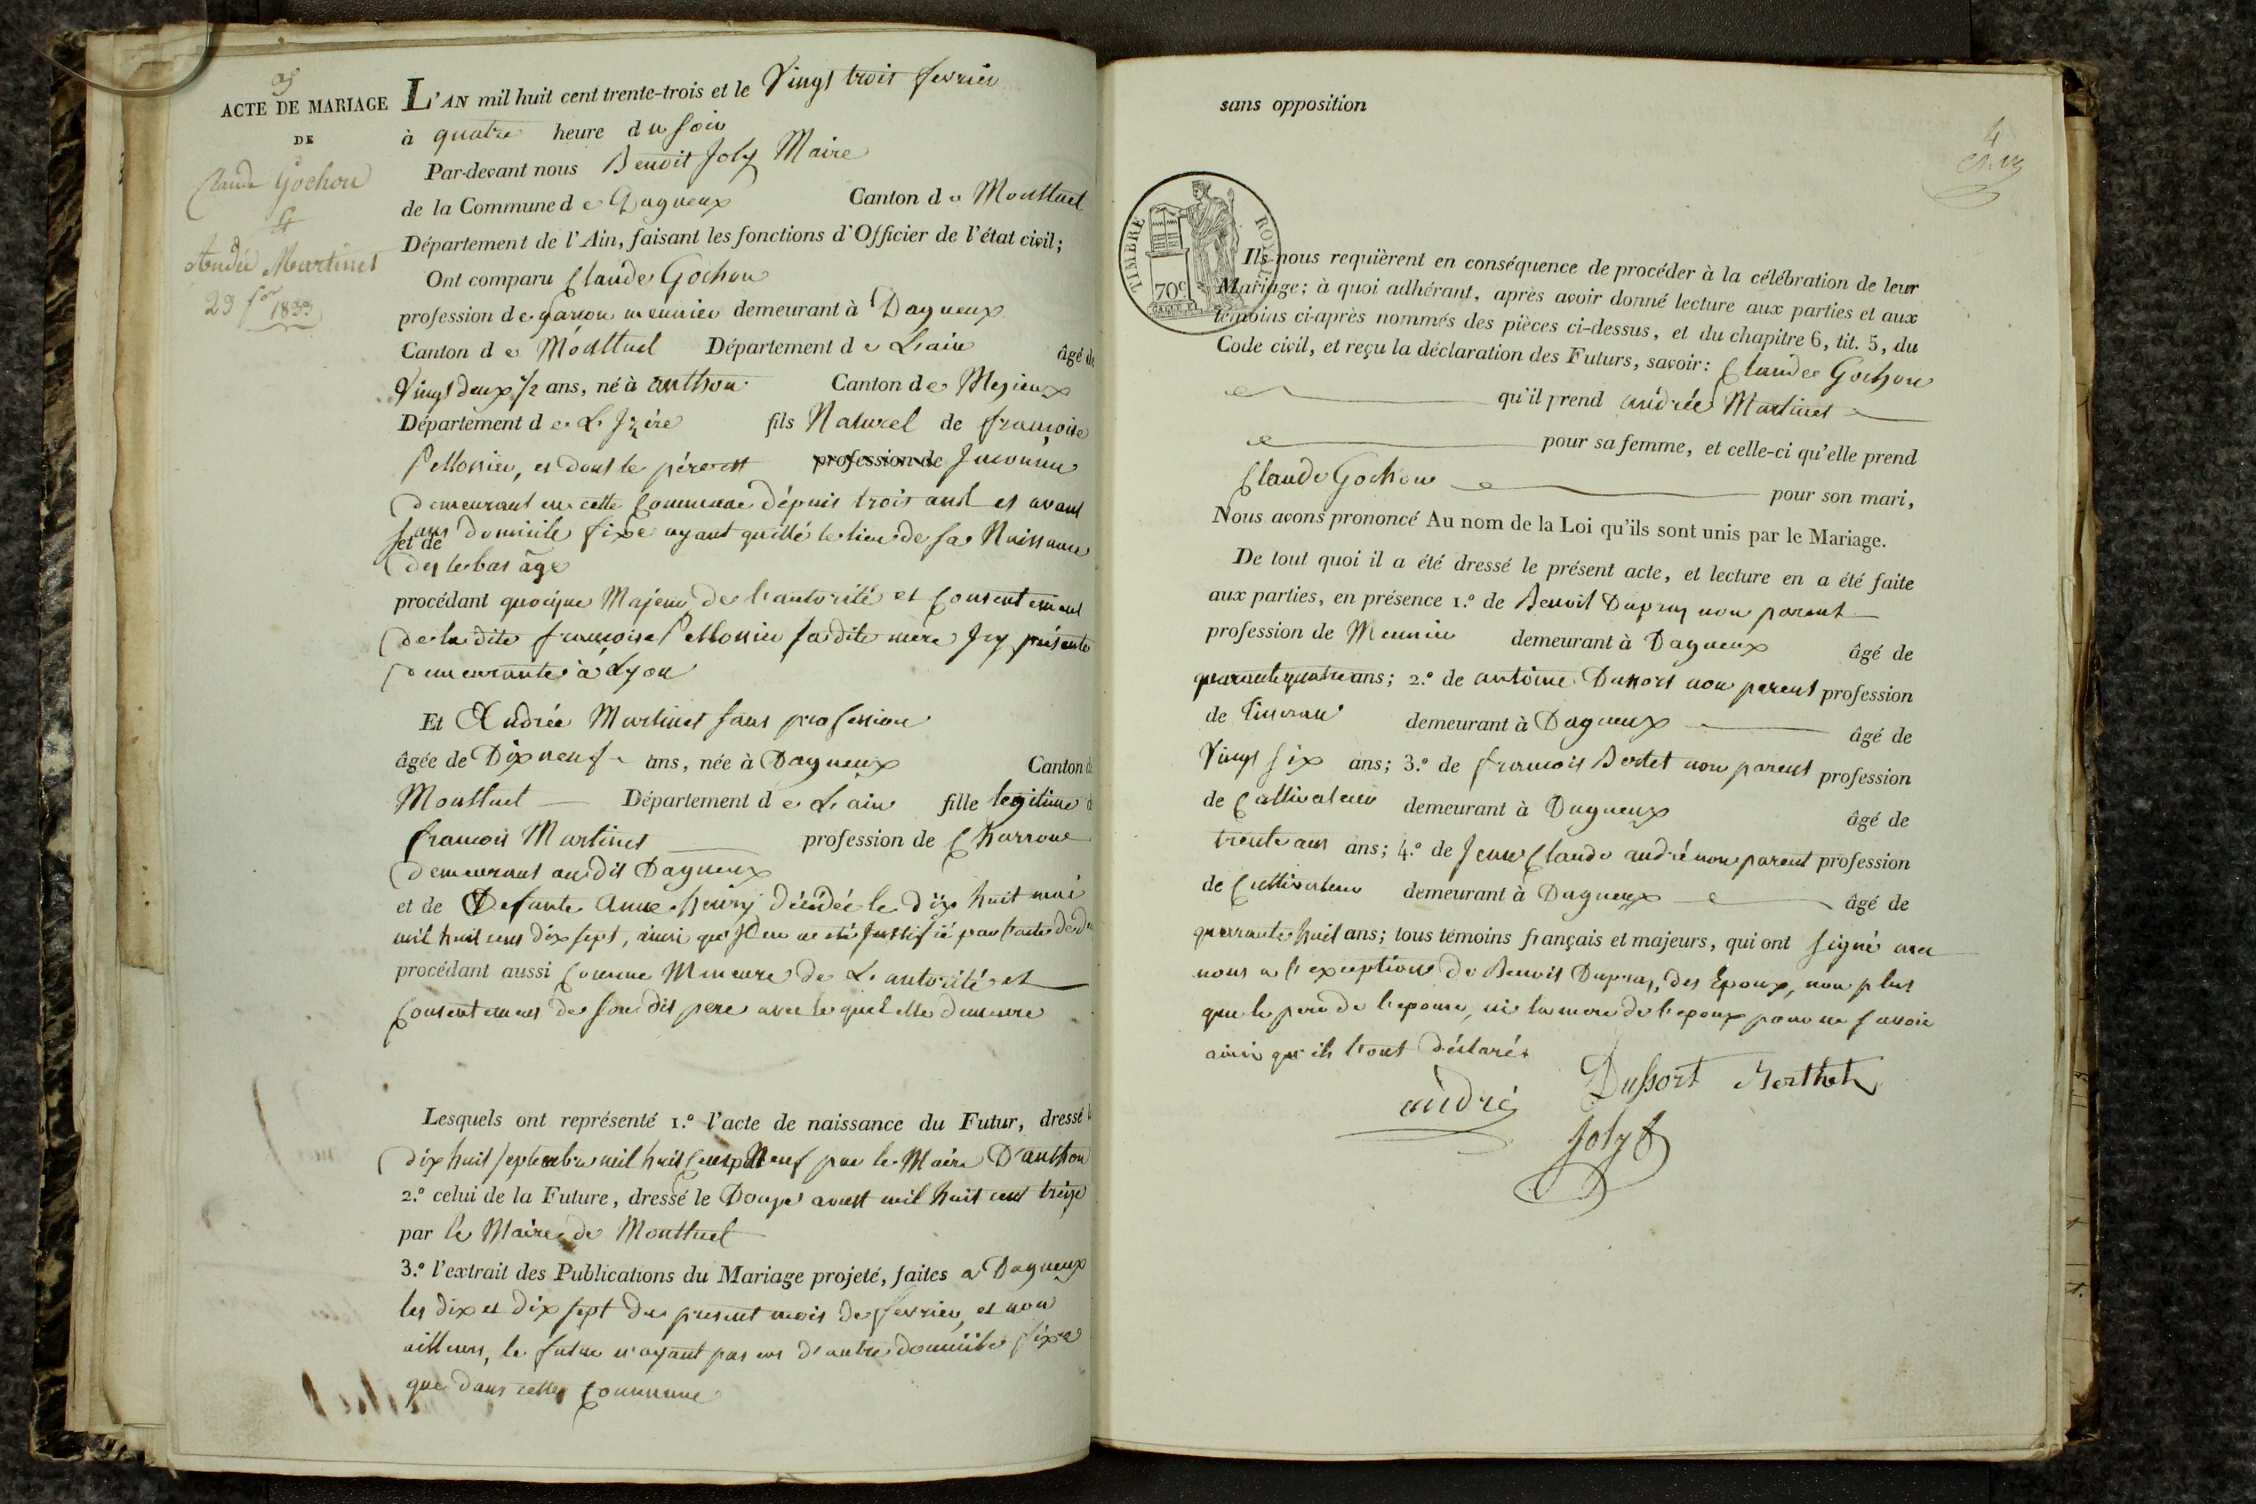 ACTE DE MARIAGE
DE
Claude Gochon
&
Andrée Martinet
23 fer 1833
L'AN mil huit cent trente-trois et le Vingt trois fevrier
à quatre heure du soir
Par-devant nous Benoit Joly Maire
de la Commune de Dagneux Canton de Montluel
Département de l'Ain, faisant les fonctions d'Officier de l'état civil;
Ont comparu Claude Gochon
profession de garcon meunier demeurant à Dagneux
Canton de Montluel Département de L'ain âgé de
Vingt deux 1/2 ans, né à anthon Canton de Mezieux
Département de L'Izére fils Naturel de francoise
Pellossier, et dont le pére est profession de Inconnu
demeurant en cette Commune dépuis trois ans et avant
sans domicile fixe ayant quitté le lieu de sa Naissance
et de
des le bas âge
procédant quoique Majeur de l'autorité et Consentement
de la dite francoise Pellossier sa dite mere Icy présente
demeurante à Lyon
Et Andrée Martinet sans profession
âgée de Dix neuf ans, née à Dagneux Canton d
Montluel Département de L'ain fille legitime d
francois Martinet profession de Charron
demeurant au dit Dagneux
et de Defunte Anne henry décédée le dix huit mai
mil huit cent dix sept, ainsi qu'il en a été Justifié par l'acte de
procédant aussi Comme Mineure de L'autorité et
Consentement de son dit pere avec lequel elle demeure
Lesquels ont représenté 1.º l'acte de naissance du Futur, dressé l
dix huit septembre mil huit Cent Neuf par le Maire D'anthon
2.º celui de la Future, dressé le Douze aoust mil huit cent treize
par le Maire de Montluel
3.º l'extrait des Publications du Mariage projeté, faites a Dagneux
les dix et dix sept du present mois de fevrier, et non
ailleurs, le futur n'ayant pas eu d'autre domicile fixe
que dans cette Commune
sans opposition
4
TIMBRE ROYAL
70c
Ils nous requièrent en conséquence de procéder à la célébration de leur
Mariage; à quoi adhérant, après avoir donné lecture aux parties et aux
témoins ci-après nommés des pièces ci-dessus, et du chapitre 6, tit. 5, du
Code civil, et reçu la déclaration des Futurs, savoir: Claude Gochon
qu'il prend andrée Martinet
pour sa femme, et celle-ci qu'elle prend
Claude Gochon pour son mari,
Nous avons prononcé Au nom de la Loi qu'ils sont unis par le Mariage.
De tout quoi il a été dressé le présent acte, et lecture en a été faite
aux parties, en présence 1.º de Benoit Dupray non parent
profession de Meunier demeurant à Dagneux âgé de
quarante quatre ans; 2.º de antoine Dussort non parent profession
de Tisseran demeurant à Dagneux âgé de
Vingt six ans; 3.º de francois Bertet non parent profession
de Cultivateur demeurant à Dagneux âgé de
trente ans ans; 4.º de Jean Claude andré non parent profession
de Cultivateur demeurant à Dagneux âgé de
quarante huit ans; tous témoins français et majeurs, qui ont signé avec
nous a l'exception de Benoit Dupray, des Epoux, non plus
que le pere de l'epouse, ni la mere de l'epoux pour ne savoir
ainsi qu'ils l'ont déclaré.
Dussort Berthet
andré
Joly